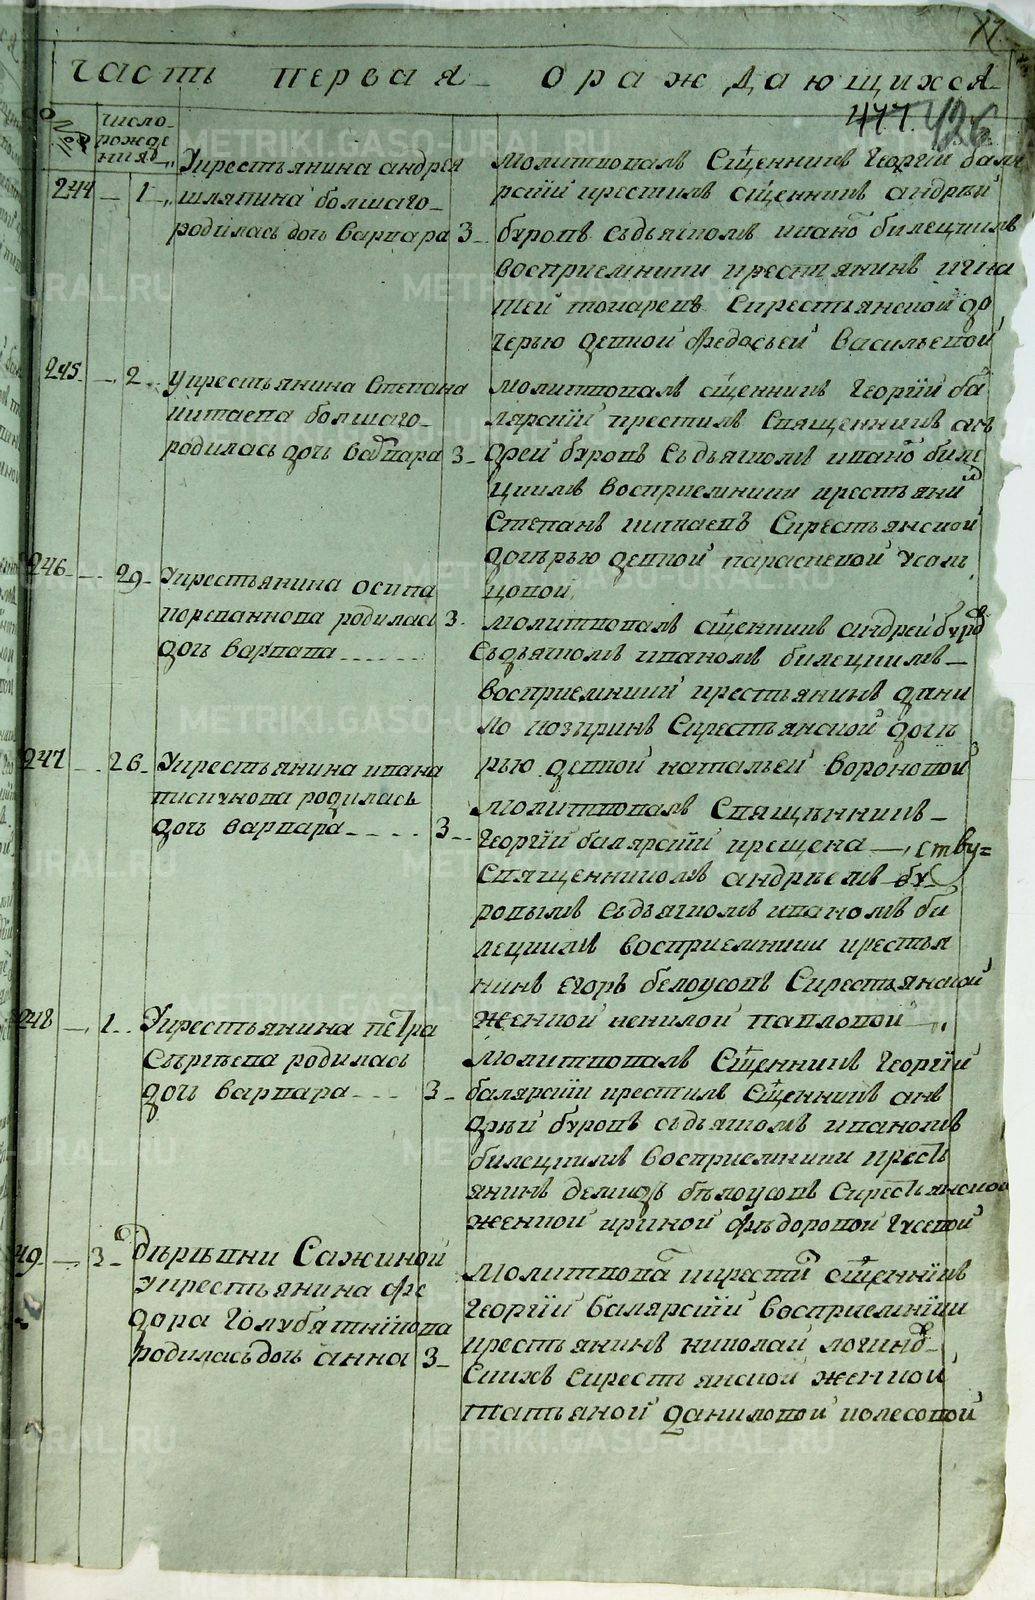 часть первая о раждающихся
447. 426
№ число рождения
244 1 Укрестьянина андрея
шляпина болшаго
родилась дочь варвара 3
молитвовалъ сщенникъ георгiй баля
рскiй крестилъ сщенникъ андрѣй
буровъ съдьячкомъ иваномъ билецкимъ
восприемники крестьянинъ игна
тей токаревъ Скрестьянской до
черью девкой федосьей васильевой
245 2 укрестьянина Степана
китаева болшаго
родилась дочь варвара 3
молитвовалъ сщенникъ георгiй ба
лярскiй крестилъ Священникъ ан
дрей буровъ Съдьячкомъ иваномъ биле
цкимъ восприемники крестьянинъ
Степанъ китаевъ Скрестьянской
дочерью девкой парасковой усол
цовой
246 29 Укрестьянина осипа
черепаннова родилась 3
дочь варвара
молитвовалъ сщенникъ андрей буровъ
Съдьячкомъ иваномъ билецкимъ
восприемники крестьянинъ дани
ло козыринъ Скрестьянской доче
рью девкой натальей вороновой
247 26 Укрестьянина ивана
писичкова родилась
дочь варвара 3
молитвовалъ Священникъ
георгiй балярскiй крещена
Священникомъ андрѣемъ бу
ровымъ Съдьячкомъ иваномъ би
лецкимъ восприемники крестья
нинъ егоръ белоусовъ Скрестьянской
женкой ненилой павловой
248 1 Укрестьянина петра
Сергѣева родилась
дочь варвара 3
молитвовалъ Сщенникъ георгiй
балярскiй крестилъ Сщенникъ анъ
дрѣй буровъ съдьячкомъ иваномъ
билецкимъ восприемники кресть
янинъ демидъ бѣлоусовъ Скрестьянской
женкой ириной федоровой гусевой
49 3 деревни Сажиной
укрестьянина фе
дора голубятникова
родилась дочь анна 3
молитвова икрести сщенникъ
георгiй балярскiй восприемники
крестьянинъ николай логинов
скихъ Скрестьянской женкой
татьяной даниловой колесовой